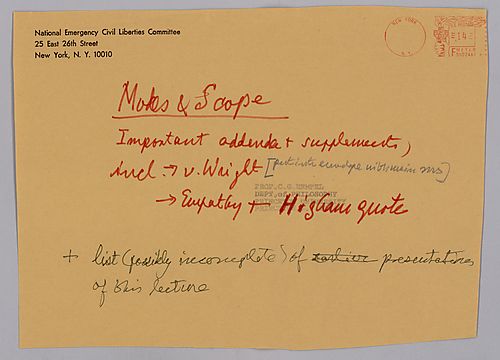 National Emergency Civil Liberties Committee
25 East 26th Street
New York, N. Y. 10010
NEW YORK
N.Y.
Modes & Scope
Important addenda + supplements,
incl. → v. Wright [put into envelope with main ms]
PROF. C. G. HEMPEL
DEPT. of PHILOSOPHY
PRINCETON UNIVERSITY
→ Empathy + Higham quote
+ list (possibly incomplete) of earlier presentations
of this lecture